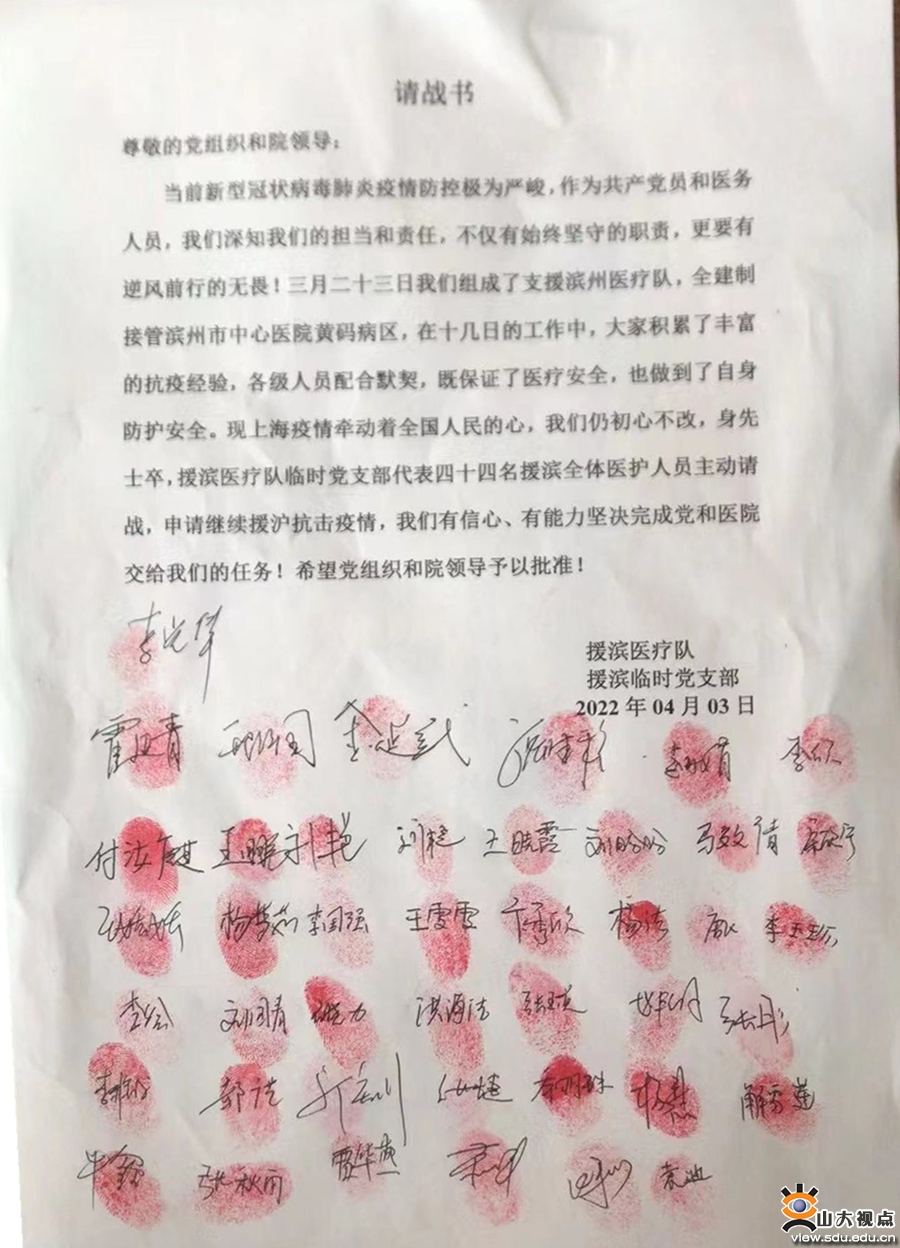 请战书
尊敬的党组织和院领导:
当前新型冠状病毒肺炎疫情防控极为严峻,作为共产党员和医务
人员,我们深知我们的担当和责任,不仅有始终坚守的职责,更要有
逆风前行的无畏!三月二十三日我们组成了支援滨州医疗队,全建制
接管滨州市中心医院黄码病区,在十几日的工作中,大家积累了丰富
的抗疫经验,各级人员配合默契,既保证了医疗安全,也做到了自身
防护安全。现上海疫情牵动着全国人民的心,我们仍初心不改,身先
士卒,援滨医疗队临时党支部代表四十四名援滨全体医护人员主动请
战,申请继续援沪抗击疫情,我们有信心、有能力坚决完成党和医院
交给我们的任务!希望党组织和院领导予以批准!
援滨医疗队
援滨临时党支部
2022 年 04 月 03 日
李光华
金延武 李欣
王鹏 刘艳 刘艳 王晓霞 刘盼盼
杨梦茹 李国强 王雯雯 杨洁
洪海洁
郭洁
牛鑫 张秋雨 贾华燕 袁迪
山大视点
view.sdu.edu.cn